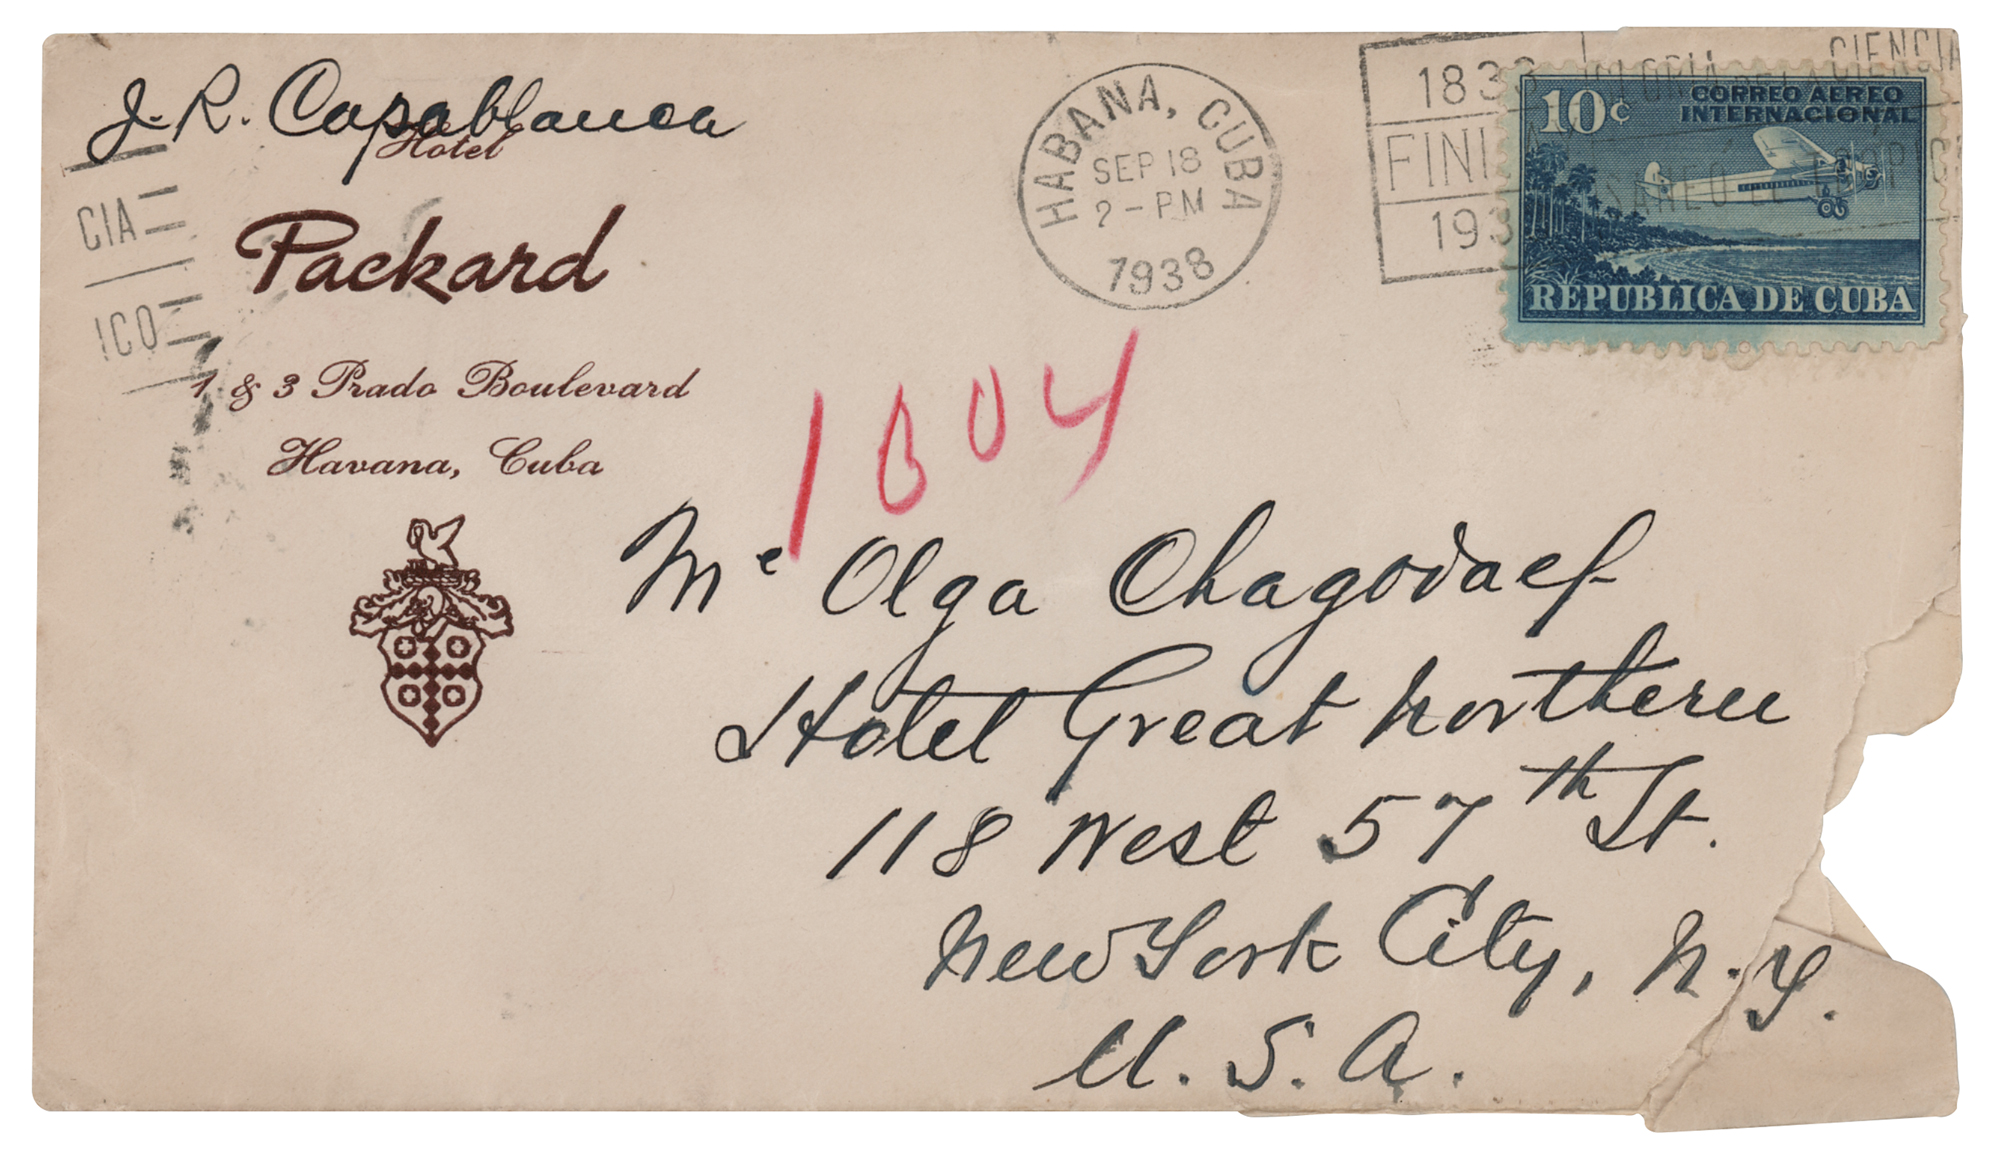 J. R. Capablanca
Hotel
Packard
1 & 3 Prado Boulevard
Havana, Cuba
CIA
ICO
HABANA, CUBA
SEP 18
2 - PM
1938
1833
FINLA
193
GLORIA DE LA CIENCIA
SANEÓ EL TROPICO
10¢
CORREO AEREO
INTERNACIONAL
REPUBLICA DE CUBA
1004
Me Olga Chagodaef
Hotel Great Northern
118 West 57th St.
New York City, N.Y.
U.S.A.